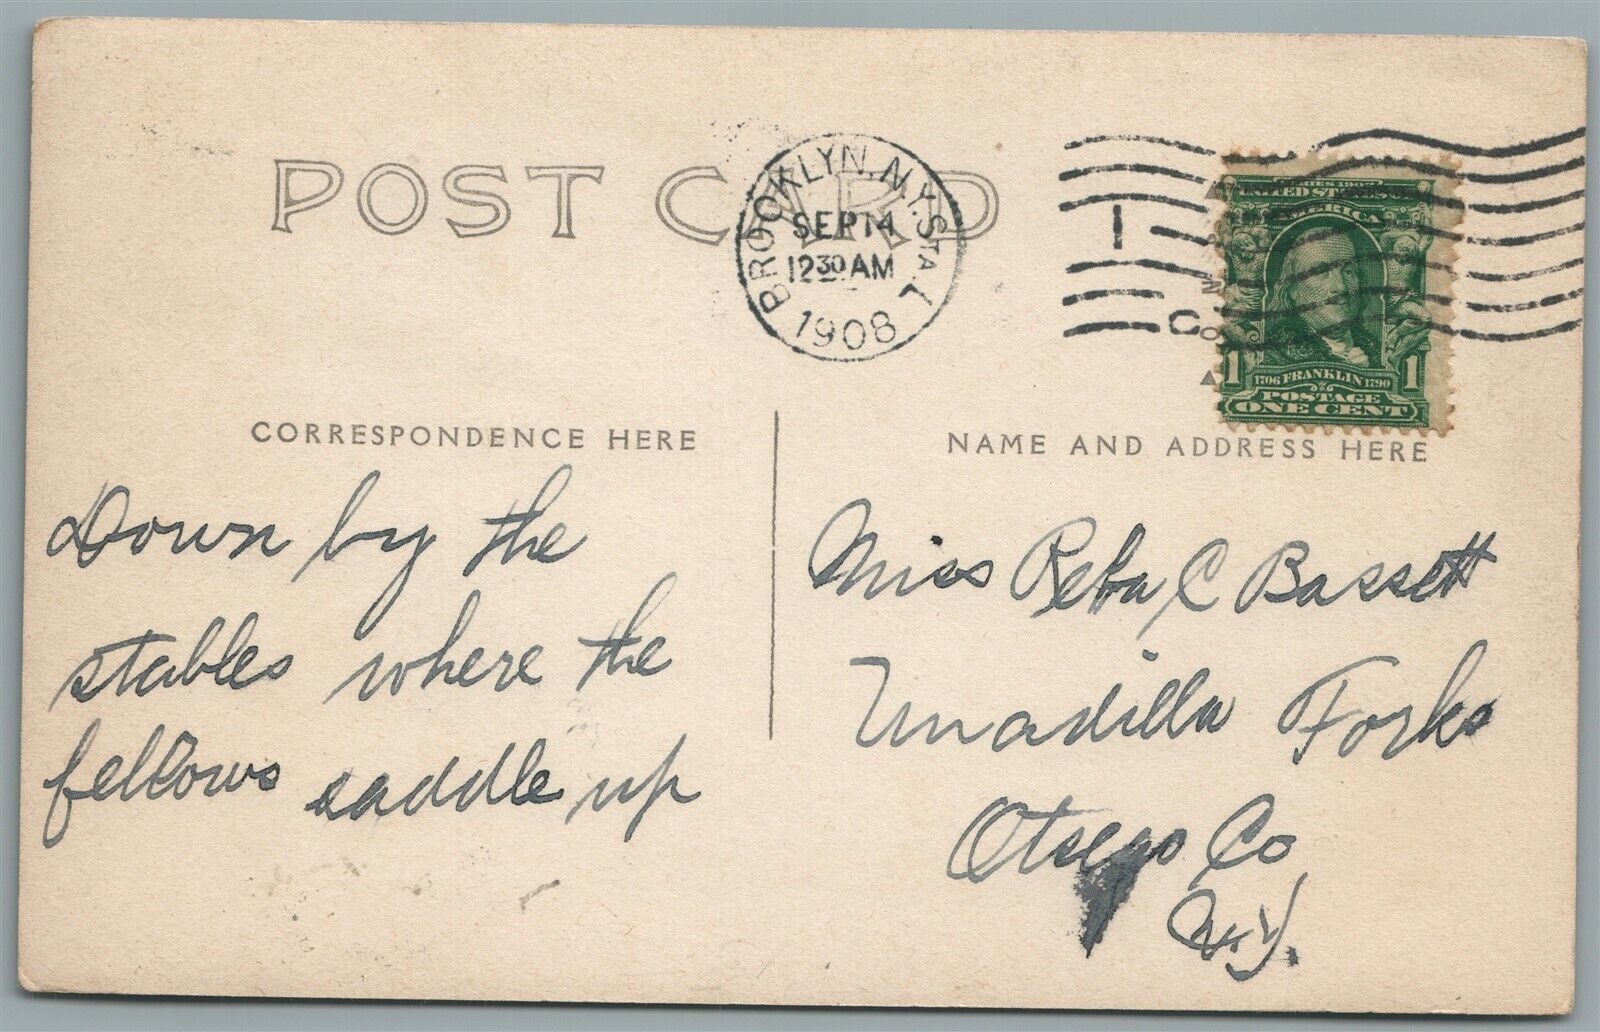 POST CARD
BROOKLYN, N.Y. STA. L
SEP 14
12 30 AM
1908
1
C
SERIES 1902
UNITED STATES OF
AMERICA
1 1706 FRANKLIN 1790 1
POSTAGE
ONE CENT
CORRESPONDENCE HERE
NAME AND ADDRESS HERE
Down by the
stables where the
fellows saddle up
Miss Reba C Bassett
Unadilla Forks
Otsego Co
N.Y.